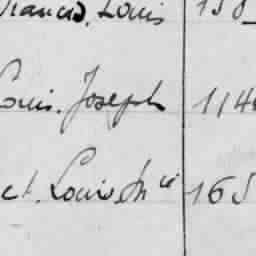 Francis. Louis 150
Louis. Joseph 114
ct. Louis Mie 165